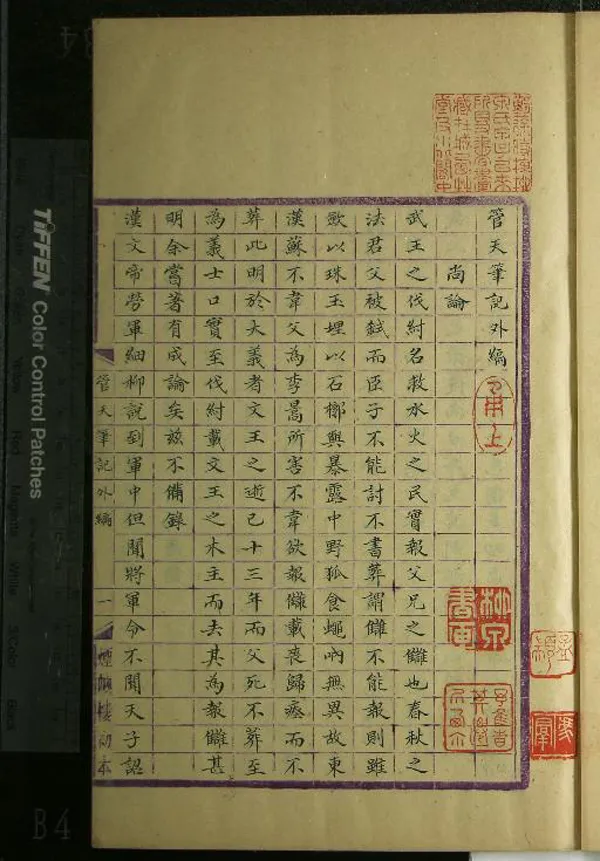 管天筆記外編
尚論
武王之伐紂名救水火之民實報父兄之讎也春秋之
法君父被弑而臣子不能討不書葬謂讎不能報則雖
斂以珠玉埋以石槨與暴露中野狐食蠅蚋無異故東
漢蘇不韋父為李暠所害不韋欲報讎載喪歸瘞而不
葬此明於大義者文王之逝已十三年而父死不葬至
為義士口實至伐紂載文王之木主而去其為報讎甚
明余嘗著有成論矣茲不備錄
漢文帝勞軍細柳說到軍中但聞將軍令不聞天子詔
管天筆記外編
一
煙嶼樓初本
柳泉
書画
B4
TIFFEN Color Control Patches